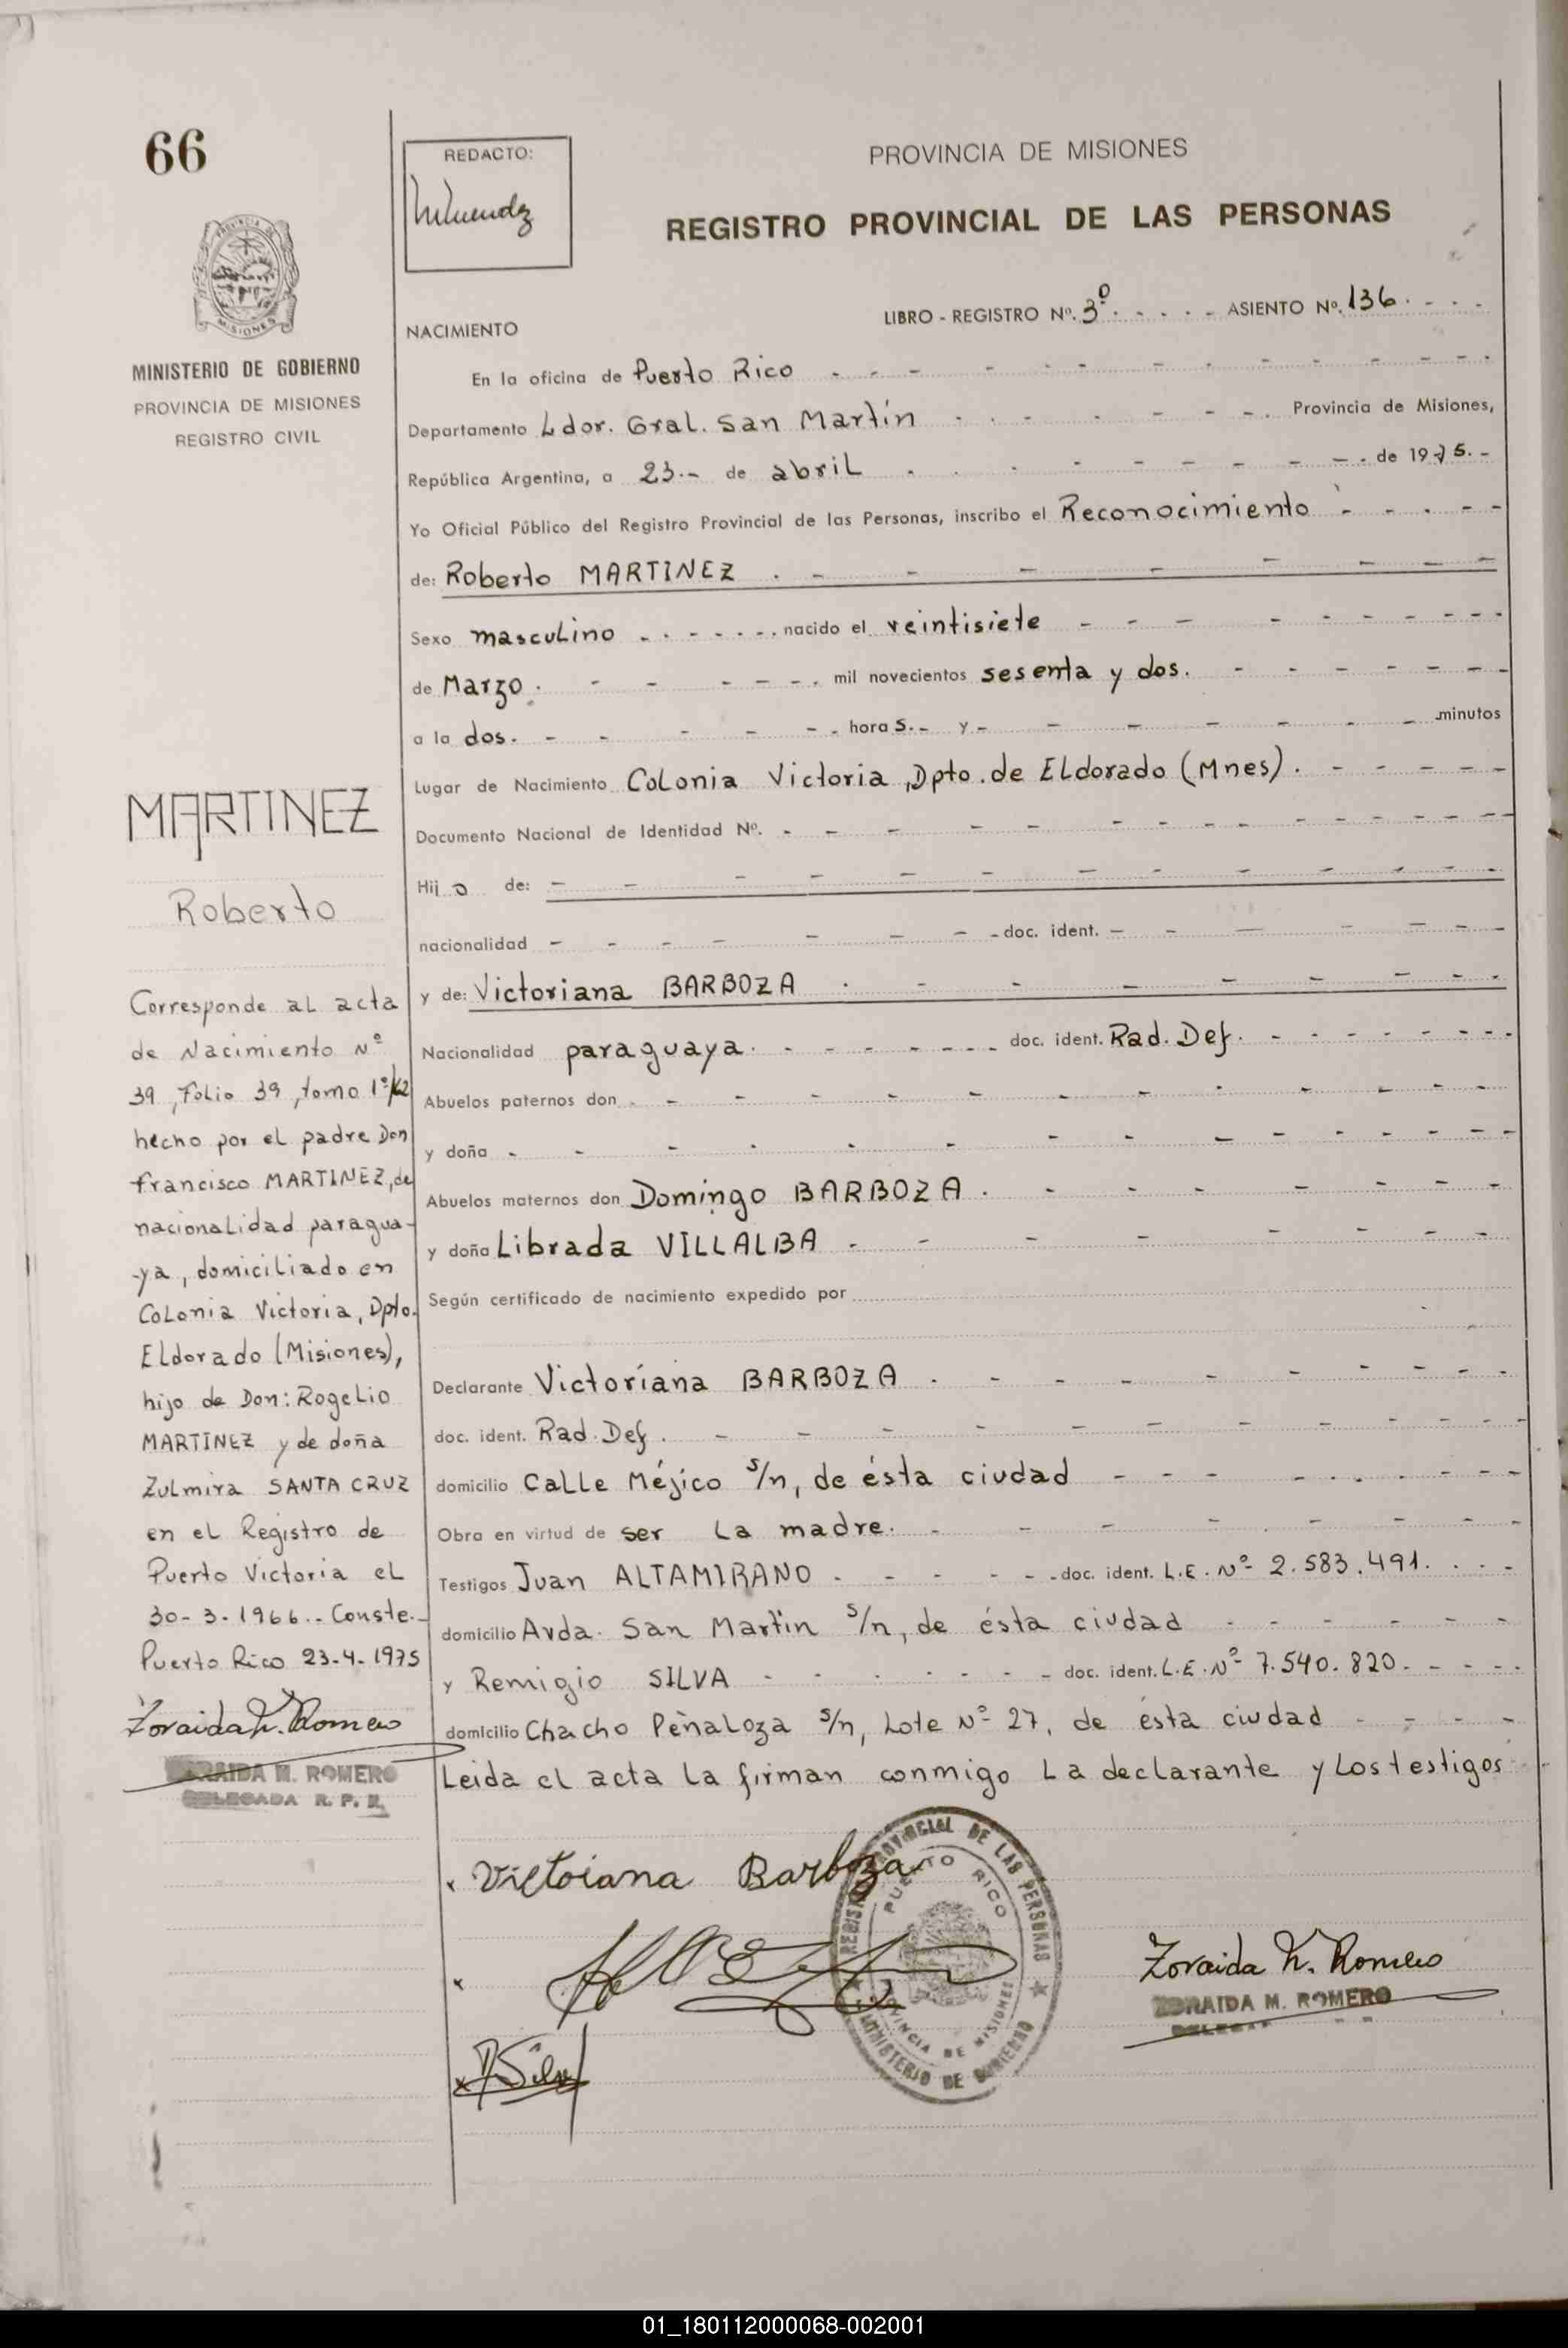 66
REDACTO:
PROVINCIA DE MISIONES
REGISTRO PROVINCIAL DE LAS PERSONAS
MISIONES
MINISTERIO DE GOBIERNO
PROVINCIA DE MISIONES
REGISTRO CIVIL
LIBRO - REGISTRO Nº. 3º - - - - - ASIENTO Nº. 136 - - - -
NACIMIENTO
En la oficina de Puerto Rico - - - - - - - - - - -
Departamento Ldor. Gral. San Martín - - - - - - - Provincia de Misiones,
República Argentina, a 23.- de abril - - - - - - - - de 1975.-
Yo Oficial Público del Registro Provincial de las Personas, inscribo el Reconocimiento - - - - -
de: Roberto MARTINEZ - - - - - - - -
Sexo masculino - - - - - - nacido el veintisiete - - - - - - - - -
de Marzo. - - - - - - mil novecientos sesenta y dos. - - - - - -
a la dos. - - - - - - horas.- y - - - - - - - minutos
Lugar de Nacimiento Colonia Victoria, Dpto. de Eldorado (Mnes). - - - - -
Documento Nacional de Identidad Nº. - - - - - - - - - - - -
Hijo de: - - - - - - - - - - -
nacionalidad - - - - - - - doc. ident. - - - - - - -
y de: Victoriana BARBOZA - - - - - - - -
Nacionalidad paraguaya. - - - - - - doc. ident. Rad. Def. - - - - - - -
Abuelos paternos don - - - - - - - - - - - -
y doña - - - - - - - - - - - - -
Abuelos maternos don Domingo BARBOZA. - - - - - - -
y doña Librada VILLALBA - - - - - - -
Según certificado de nacimiento expedido por
Declarante Victoriana BARBOZA - - - - - - - - -
doc. ident. Rad. Def. - - - - - - - - - - - -
domicilio Calle Méjico s/n, de ésta ciudad - - - - - - - - -
Obra en virtud de ser la madre. - - - - - - - -
Testigos Juan ALTAMIRANO - - - - - - doc. ident. L.E. Nº 2.583.491. - - -
domicilio Avda. San Martin s/n, de ésta ciudad - - - - - - -
y Remigio SILVA - - - - - - - doc. ident. L.E. Nº 7.540.820. - - - -
domicilio Chacho Peñaloza s/n, Lote Nº 27, de ésta ciudad - - - -
Leida el acta la firman conmigo La declarante y los testigos
MARTINEZ
Roberto
Corresponde al acta
de Nacimiento Nº
39, Folio 39, tomo 1º/62
hecho por el padre Don
Francisco MARTINEZ, de
nacionalidad paragua-
-ya, domiciliado en
Colonia Victoria, Dpto.
Eldorado (Misiones),
hijo de Don: Rogelio
MARTINEZ y de doña
Zulmira SANTA CRUZ
en el Registro de
Puerto Victoria el
30-3-1966.- Conste.-
Puerto Rico 23-4-1975
Zoraida M. Romero
ZORAIDA M. ROMERO
DELEGADA R. P. P.
Victoriana Barboza
REGISTRO PROVINCIAL DE LAS PERSONAS
PUERTO RICO
PROVINCIA DE MISIONES
MINISTERIO DE GOBIERNO
R Silva
Zoraida M. Romero
ZORAIDA M. ROMERO
01_180112000068-002001